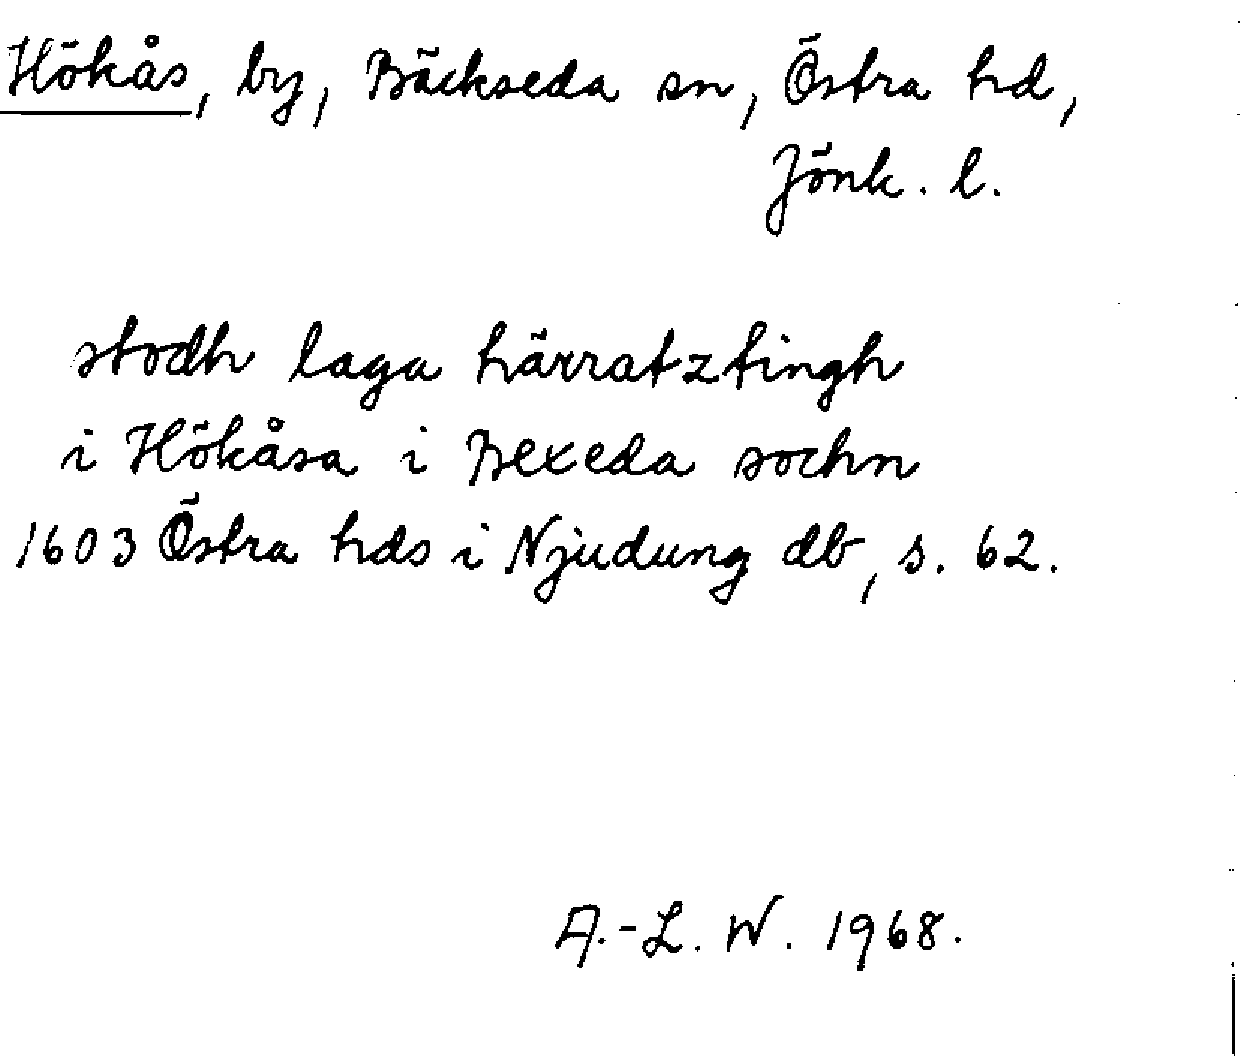 Hökås, by, Bäckseda sn, Östra hd,
Jönk. l.
stodh laga härratztingh
i Hökåsa i Bexeda sochn
1603 Östra hds i Njudung db, s. 62.
A.-L. W. 1968.